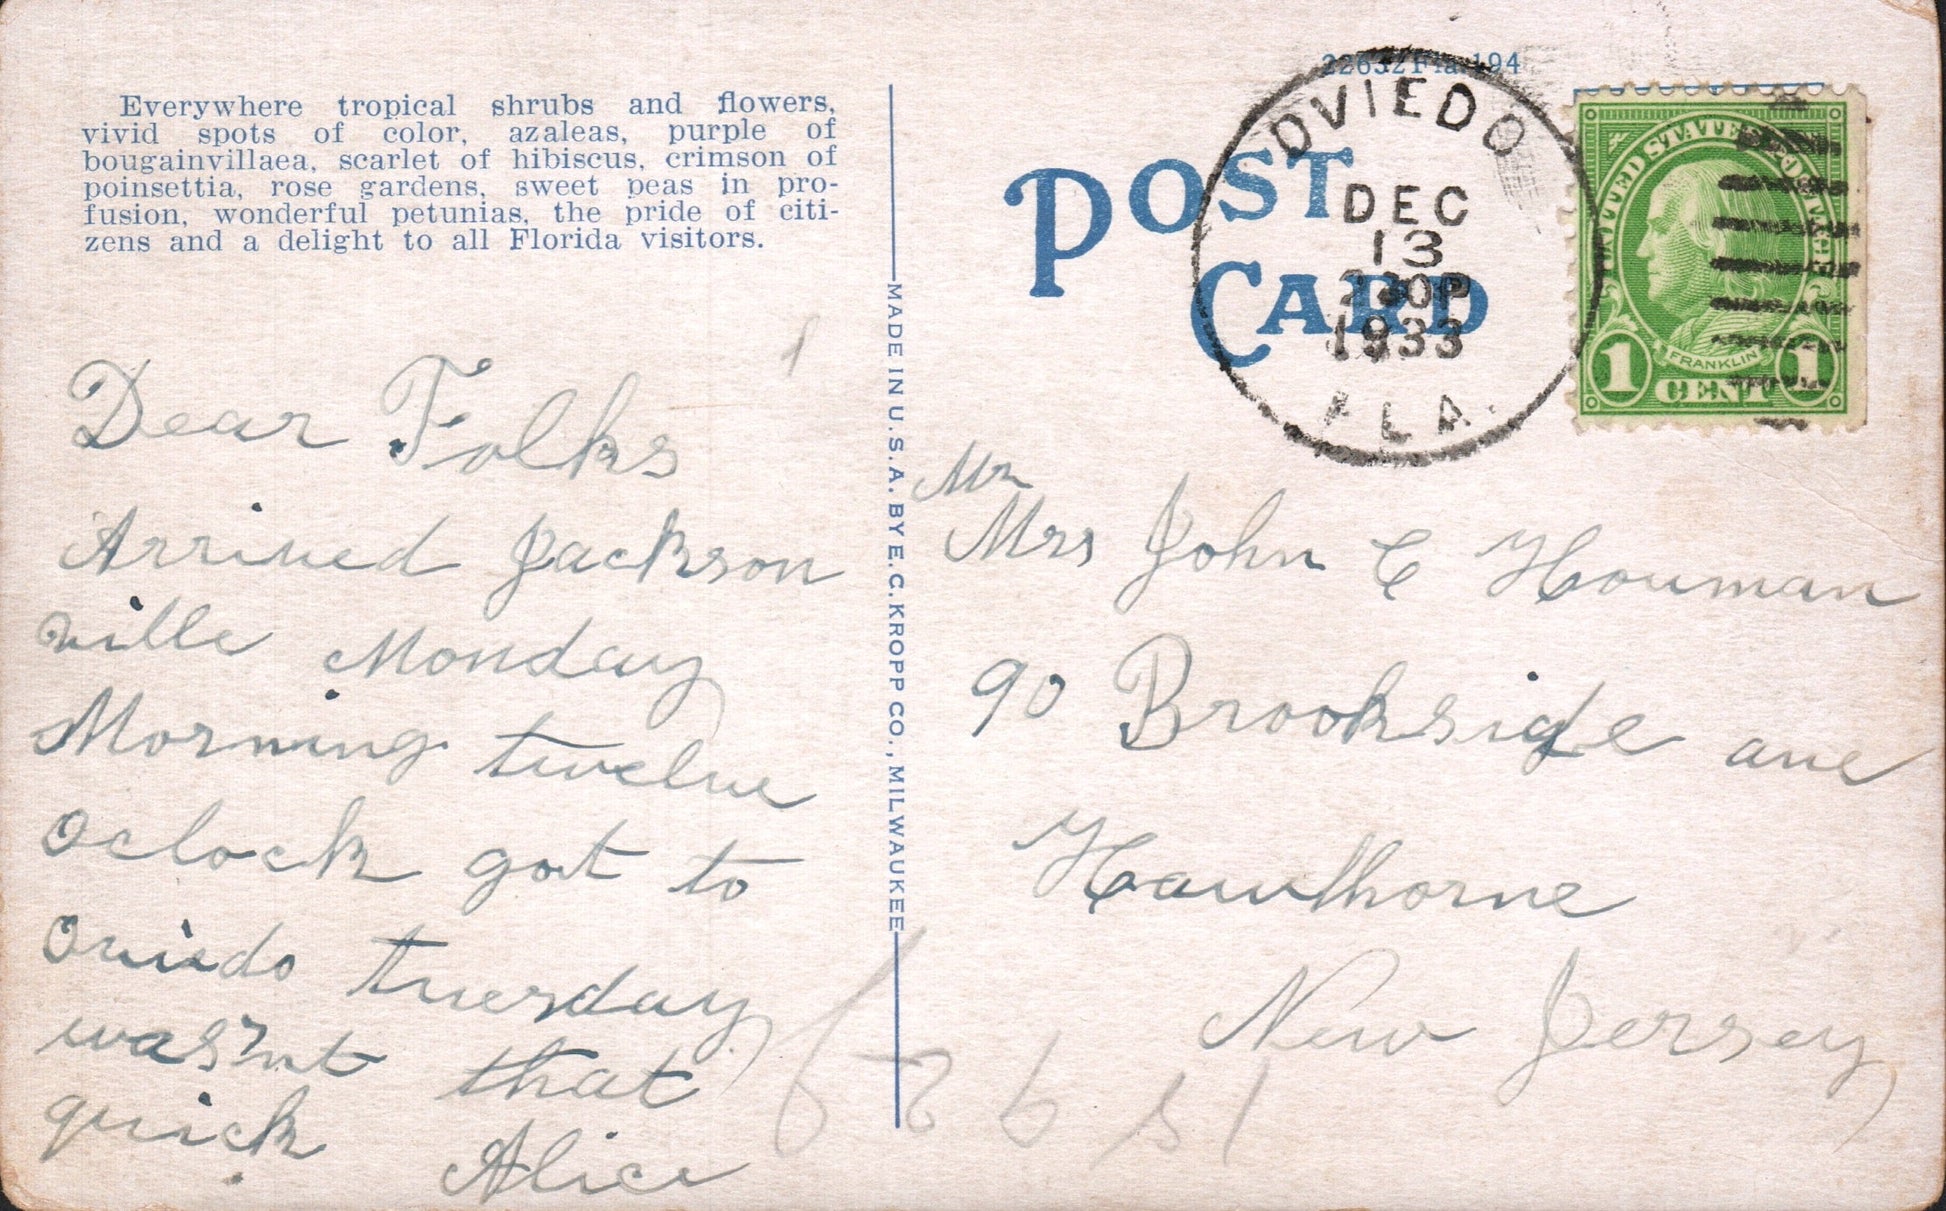 Everywhere tropical shrubs and flowers,
vivid spots of color, azaleas, purple of
bougainvillaea, scarlet of hibiscus, crimson of
poinsettia, rose gardens, sweet peas in pro-
fusion, wonderful petunias, the pride of citi-
zens and a delight to all Florida visitors.
Dear Folks
Arrived Jackson
ville Monday
Morning twelve
oclock got to
Oviedo tuesday
was'nt that
quick
Alice
MADE IN U.S.A. BY E. C. KROPP CO., MILWAUKEE
22632 Fla. 194
POST
CARD
OVIEDO
DEC
13
230P
1933
FLA.
UNITED STATES POSTAGE
FRANKLIN
1 CENT 1
Mr
Mrs John C Houman
90 Brookside ave
Hawthorne
New Jersey